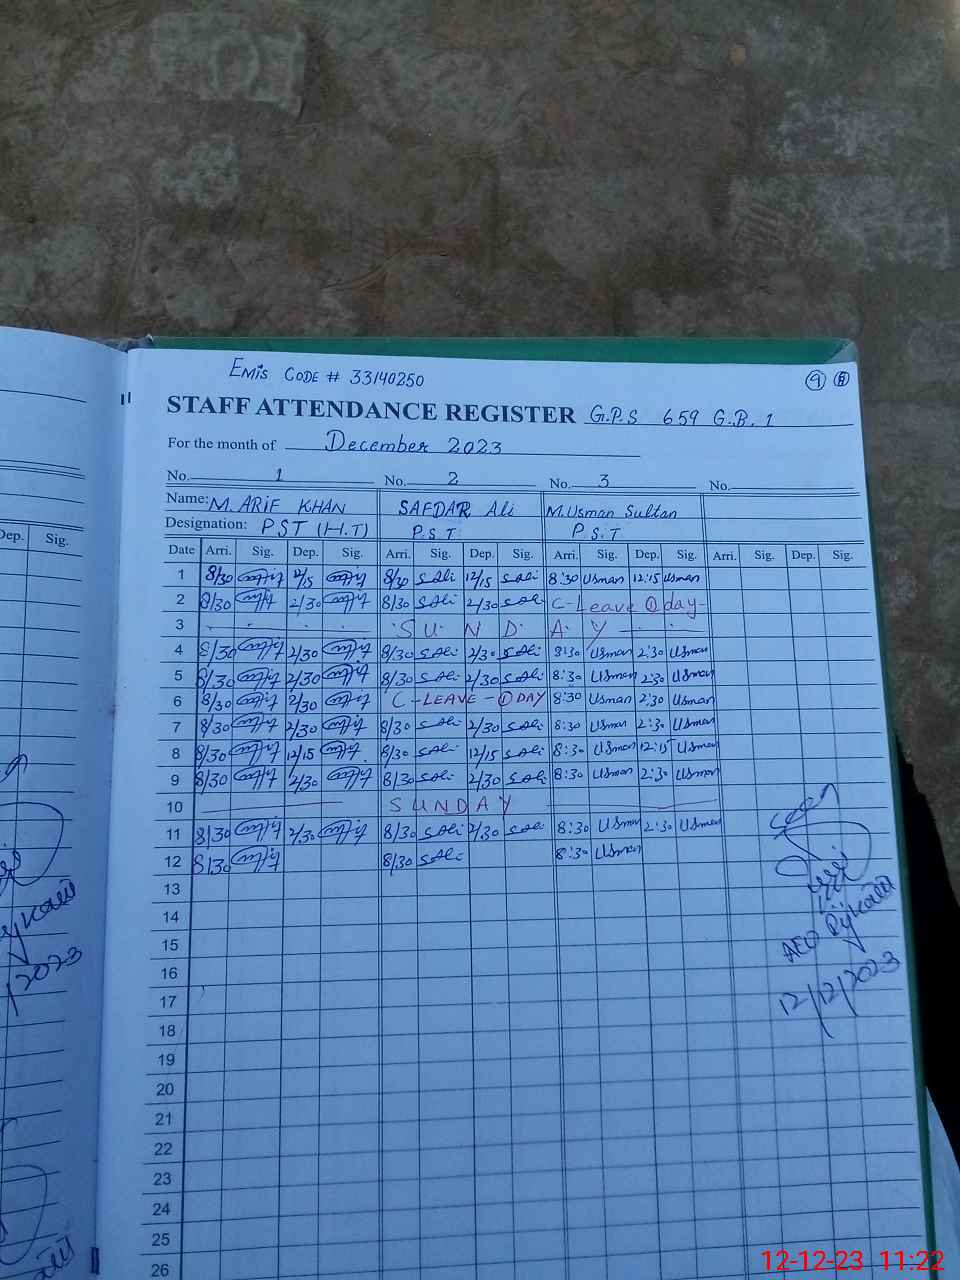 EMIS CODE # 33140250
9
STAFF ATTENDANCE REGISTER G.P.S 659 G.B.1
For the month of December 2023
No. 1 No. 2 No. 3 No.
Name: M. ARIF KHAN SAFDAR Ali M. Usman Sultan
Designation: PST (H.T) P.S.T P.S.T
Dep. Sig. Date Arri. Sig. Dep. Sig. Arri. Sig. Dep. Sig. Arri. Sig. Dep. Sig. Arri. Sig. Dep. Sig.
1 8/30 12/15 8/30 SAli 12/15 SAli 8:30 Usman 12:15 Usman
2 8/30 2/30 8/30 SAli 2/30 SAli C-Leave 1 day
3 S U N D A Y
4 8/30 2/30 8/30 SAli 2/30 SAli 8:30 Usman 2:30 Usman
5 8/30 2/30 8/30 SAli 2/30 SAli 8:30 Usman 2:30 Usman
6 8/30 2/30 C-LEAVE-1 DAY 8:30 Usman 2:30 Usman
7 8/30 2/30 8/30 SAli 2/30 SAli 8:30 Usman 2:30 Usman
8 8/30 12/15 8/30 SAli 12/15 SAli 8:30 Usman 12:15 Usman
9 8/30 2/30 8/30 SAli 2/30 SAli 8:30 Usman 2:30 Usman
10 SUNDAY
11 8/30 2/30 8/30 SAli 2/30 SAli 8:30 Usman 2:30 Usman
12 8/30 8/30 SAli 8:30 Usman
13
14
15
16
17
18
19
20
21
22
23
24
25
26
AEO
12/12/2023
/2023
12-12-23 11:22